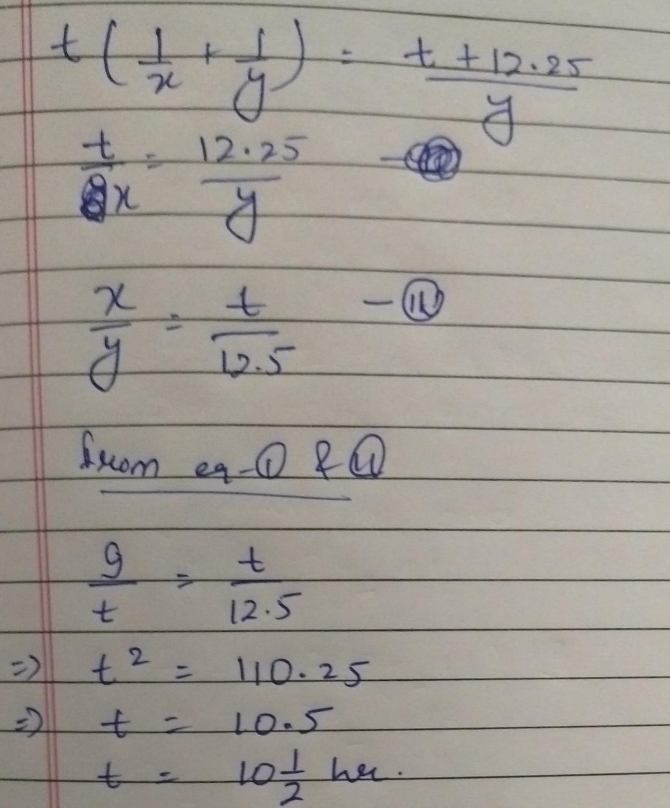 t ( 1/x + 1/y ) = t + 12.25 / y
t/x = 12.25/y
x/y = t/12.5 - (II)
from eq-(I) & (II)
9/t = t/12.5
=> t² = 110.25
=> t = 10.5
t = 10 1/2 hr.